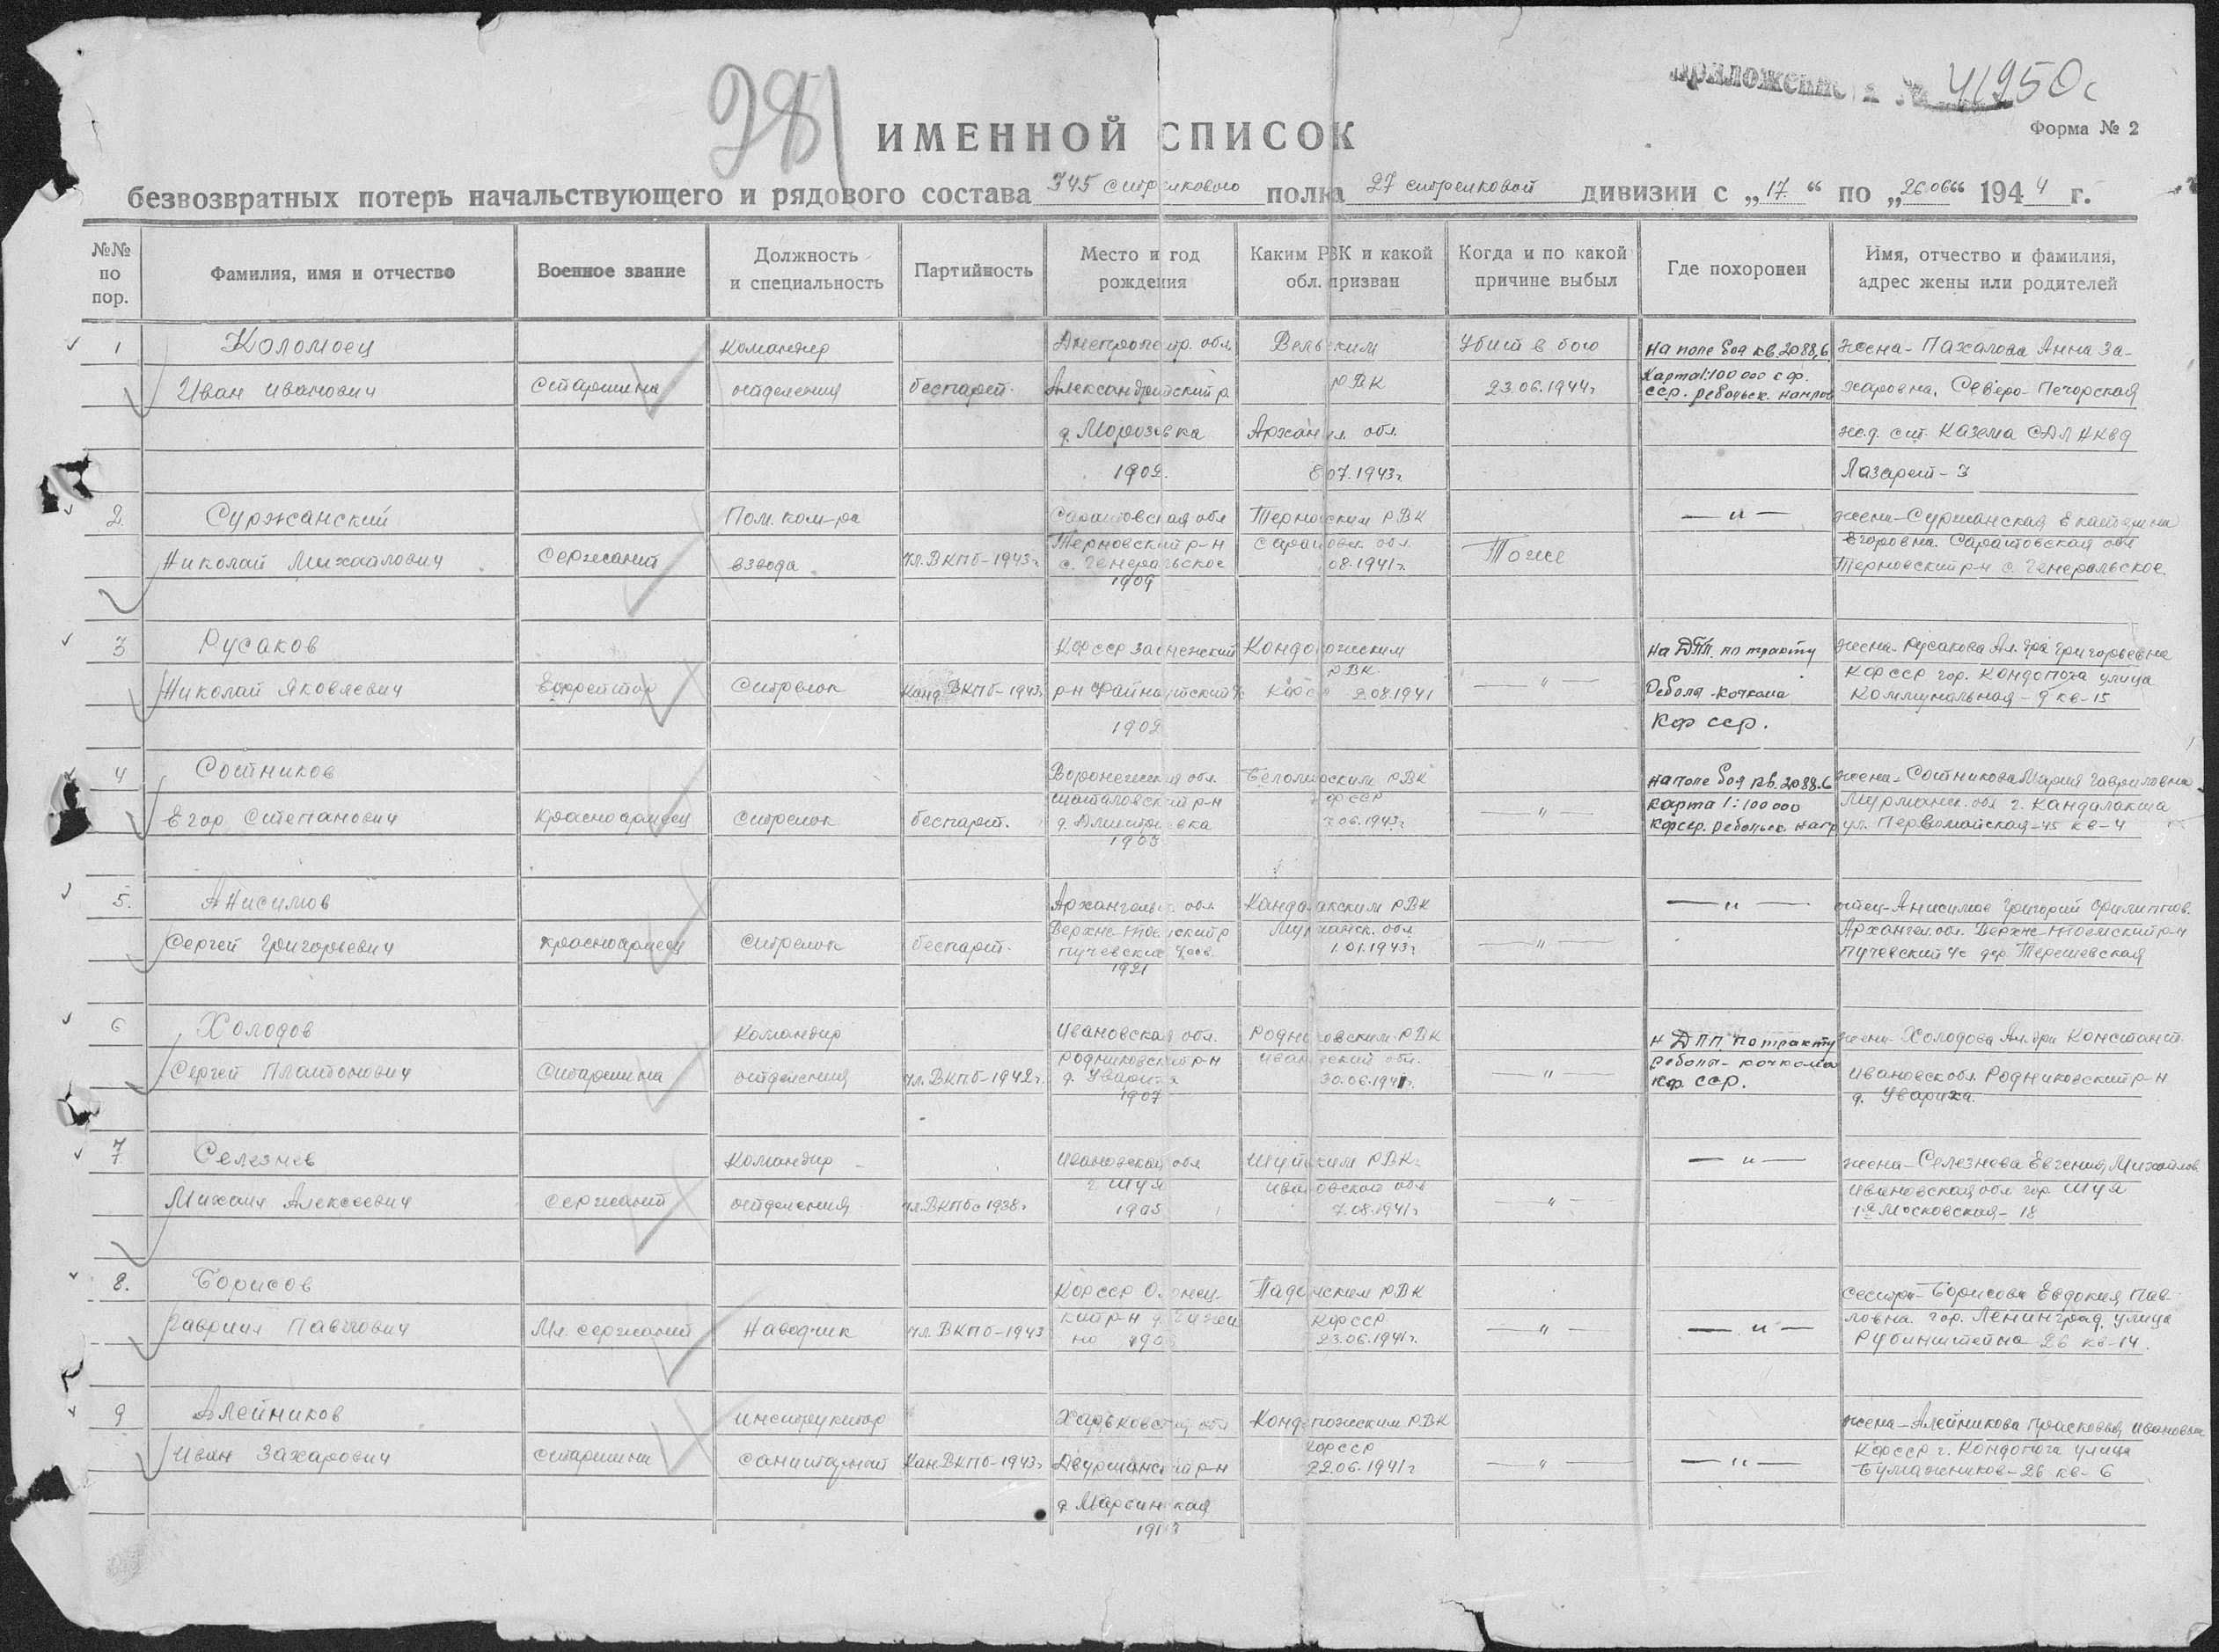 281
приложение к № 41950с
Форма № 2
ИМЕННОЙ СПИСОК
безвозвратных потерь начальствующего и рядового состава 345 стрелкового полка 27 стрелковой дивизии с „17“ по „26.06“ 1944 г.
№№ по пор.
Фамилия, имя и отчество
Военное звание
Должность и специальность
Партийность
Место и год рождения
Каким РВК и какой обл. призван
Когда и по какой причине выбыл
Где похоронен
Имя, отчество и фамилия, адрес жены или родителей
1 Коломоец Командир Днепропетр. обл. Вельским Убит в бою на поле боя кв. 2088,6 жена - Пахалова Анна За-
Иван Иванович Старшина отделения беспарт. Александрийский р. РВК 23.06.1944г. Карта 1:100 000 кф. харовна, Северо-Печорская
сср. ребольск. напр
д. Морозовка Архангел. обл. ж.д. ст. Казема НКВД
1902. 8.07.1943г. Лазарет - 3
2 Суржанский Пом. ком-ра Саратовская обл Терновским РВК — „ — жена - Суржанская Екатерина
Николай Михайлович Сержант взвода чл. ВКПб - 1943г. Терновский р-н Саратовск. обл. Тоже Егоровна. Саратовская обл
с. Генеральское 08.1941г. Терновский р-н с. Генеральское
1909
3 Русаков КФССР Заонежский Кондопожским на ДПП. по тракту жена - Русакова Ал-дра Григорьевна
РВК КФССР гор. Кондопога улица
Николай Яковлевич Ефрейтор Стрелок Канд. ВКПб - 1943г. р-н КФССР 2.08.1941 — „ — Реболя - кочкома Коммунальная - 9 кв - 15
1902 КФ сср.
4 Сотников Воронежская обл. Беломорским РВК на поле боя кв. 2088.6 жена - Сотникова Мария Гавриловна
Егор Степанович Красноармеец Стрелок беспарт. Шаталовский р-н КФССР — „ — карта 1:100000 Мурманск. обл г. Кандалакша
д. Дмитриевка 06.1943г. кфсср. ребольск. напр ул. Первомайская - 45 кв - 4
1903
5. Анисимов Архангельск. обл. Кандалакским РВК — „ — отец - Анисимов Григорий Филиппов.
Сергей Григорьевич Красноармеец Стрелок беспарт. Верхне-Тоемский р Мурманск. обл. — „ — Архангел. обл. Верхне-Тоемский р-н
Пучевский 1.01.1943г. Пучевский с/с дер. Терешевская
1921
6 Холодов Командир Ивановская обл. Родниковским РВК н ДПП по тракту жена - Холодова Ал-дра Констант.
Сергей Платонович Старшина отделения чл. ВКПб - 1942г. Родниковский р-н Ивановской обл. — „ — реболы - кочкома Ивановск обл. Родниковский р-н
д. Увариха 30.06.1941г. кф сср. д. Увариха.
1907
7 Селезнев Командир Ивановская обл Шуйским РВК — „ — жена - Селезнева Евгения Михайлов.
Михаил Алексеевич Сержант отделения чл. ВКПб с 1938г. г. Шуя Ивановской обл — „ — Ивановская обл гор. Шуя
1905 7.08.1941г. 1я Московская - 18
8. Борисов КФССР Олонец- Паданским РВК сестра - Борисова Евдокия Пав-
Гавриил Павлович Мл. сержант Наводчик чл. ВКПб - 1943 кий р-н КФССР — „ — — „ — ловна. гор. Ленинград, улица
23.06.1941г. Рубинштейна 26 кв - 14.
9 Алейников инструктор Харьковская обл Кондопожским РВК жена - Алейникова Прасковья Ивановна
Иван Захарович Старшина санитарный Кан ВКПб - 1943г. Двуречанский р-н КФССР — „ — — „ — КФССР г. Кондопога улица
22.06.1941г Бумажников - 26 кв - 6